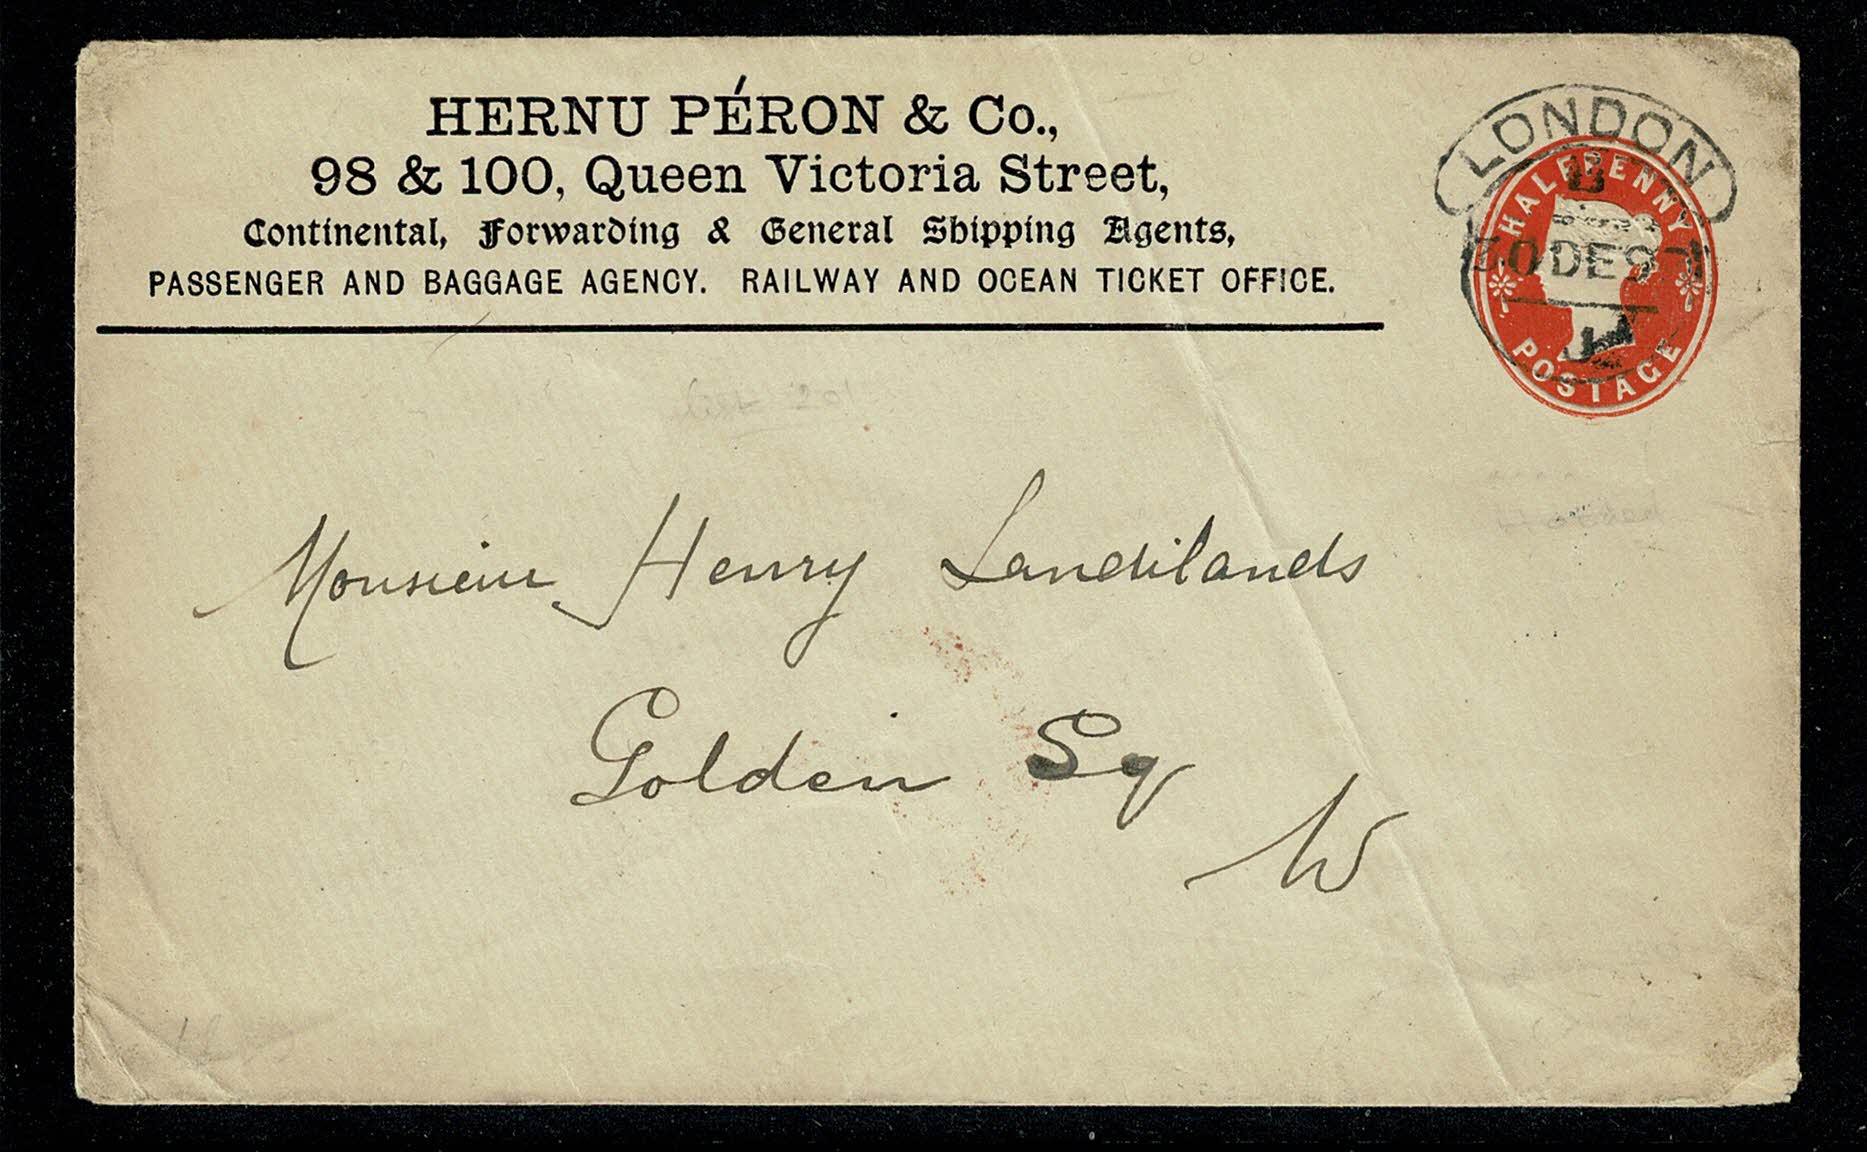 HERNU PÉRON & Co.,
98 & 100, Queen Victoria Street,
Continental, Forwarding & General Shipping Agents,
PASSENGER AND BAGGAGE AGENCY. RAILWAY AND OCEAN TICKET OFFICE.
LONDON
B
30 DE 97
HALFPENNY
POSTAGE
Monsieur Henry Sandilands
Golden Sq
W